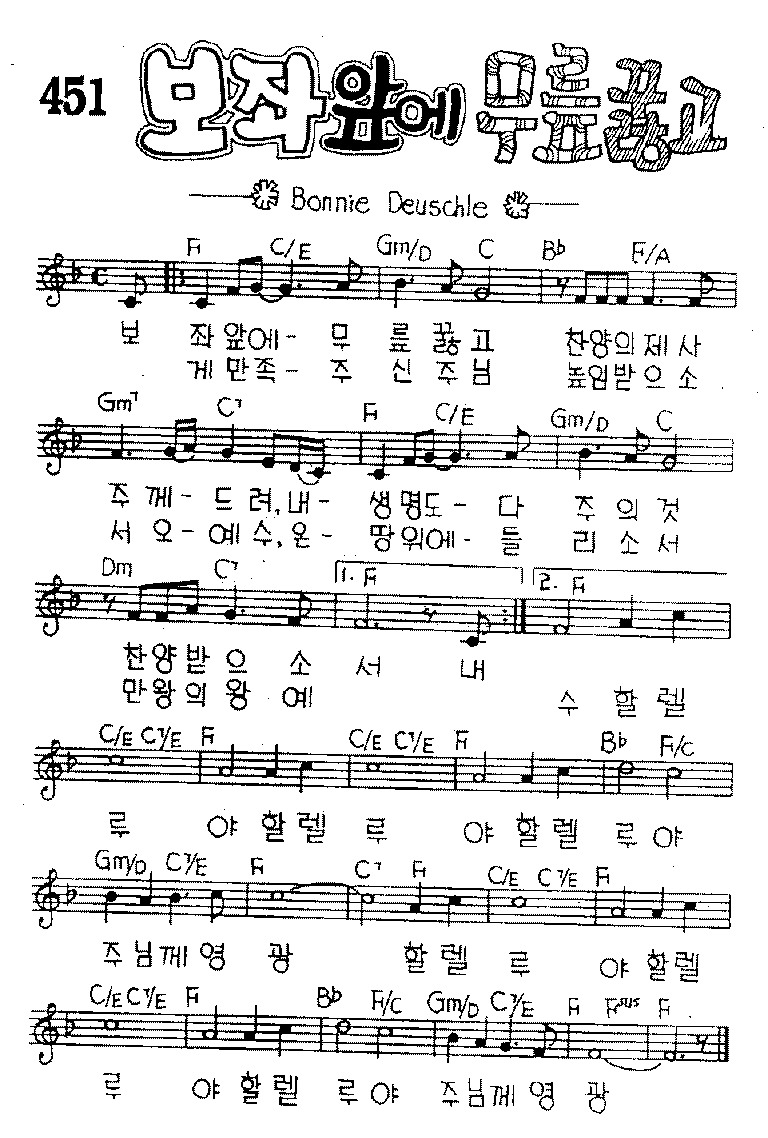 451 보좌앞에 무릎꿇고
Bonnie Deuschle
F C/E Gm/D C B♭ F/A
보 좌앞에- 무 릎꿇고 찬양의제사
게만족- 주 신주님 높임받으소
Gm7 C7 F C/E Gm/D C
주께-드려,내- 생명도-다 주의것
서오-예수,온- 땅위에-들 리소서
Dm C7 1. F 2. F
찬양받으 소 서 내
만왕의왕 예 수 할렐
C/E C7/E F C/E C7/E F B♭ F/C
루 야할렐 루 야할렐 루야
Gm/D C7/E F C7 F C/E C7/E F
주님께영 광 할렐 루 야할렐
C/E C7/E F B♭ F/C Gm/D C7/E F Fsus F
루 야할렐 루야 주님께영 광